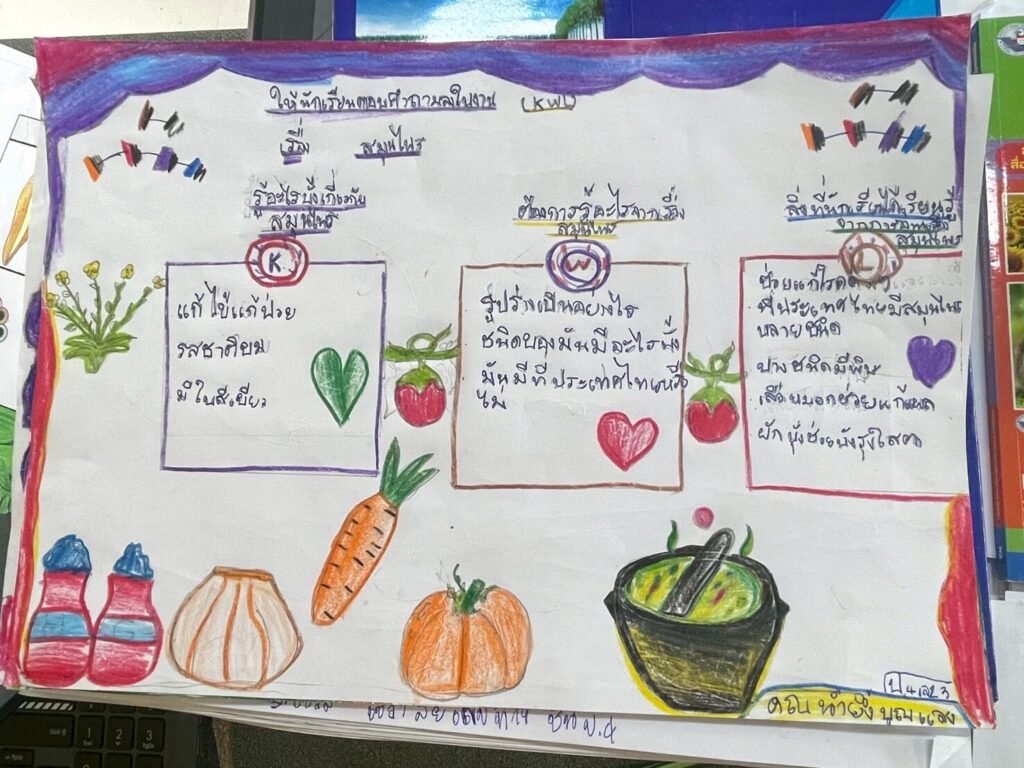 ให้นักเรียนตอบคำถามลงในงาน (KWL)
เรื่อง สมุนไพร
รู้อะไรบ้างเกี่ยวกับ
สมุนไพร
K
แก้ไข้แก้ป่วย
รสชาติขม
มีใบสีเขียว
ต้องการรู้อะไรจากเรื่อง
สมุนไพร
W
รูปร่างเป็นอย่างไร
ชนิดของมันมีอะไรบ้ง
มันมีที่ประเทศไทยหรือ
ไม่
สิ่งที่นักเรียนได้เรียนรู้
จากการอ่านเรื่อง
สมุนไพร
L
ช่วยแก้โรค
ที่ประเทศไทยมีสมุนไพร
หลายชนิด
บางชนิดมีพิษ
ช่วยแก้
ผักบุ้งช่วยบำรุง
ป.4 เลข 3